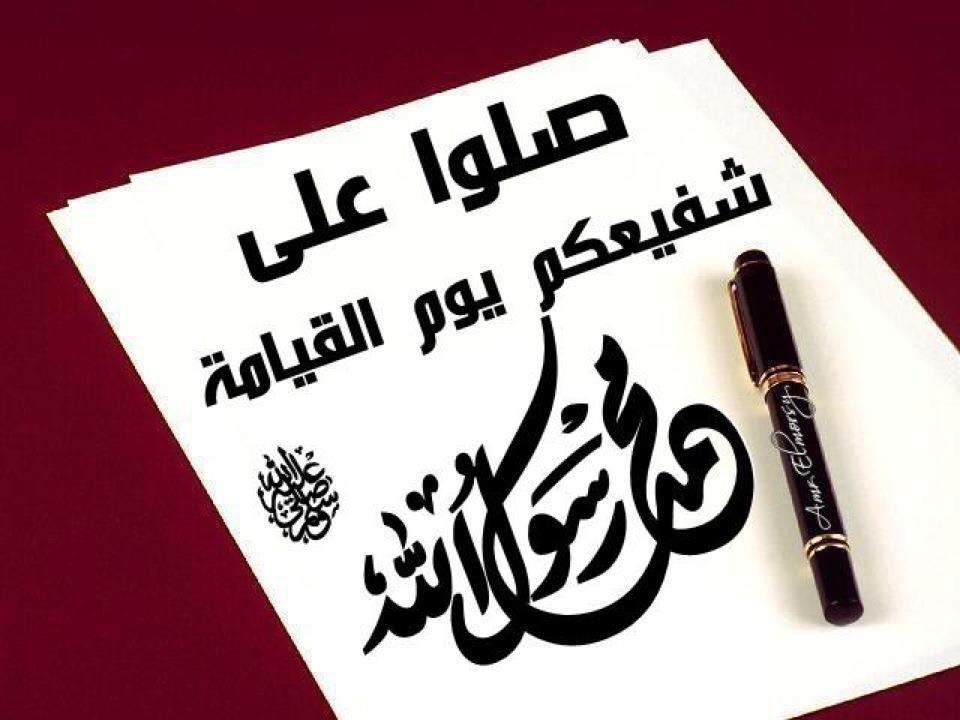 صلوا على
شفيعكم يوم القيامة
محمد رسول الله
صلى الله عليه وسلم
Amr Elmorsy